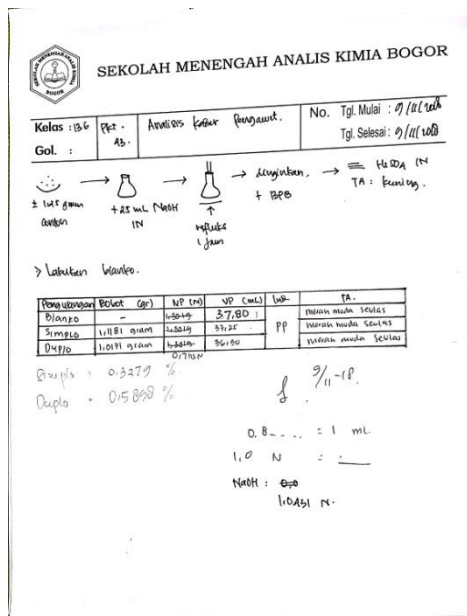 SEKOLAH MENENGAH ANALIS KIMIA BOGOR
Kelas : 13 6
Gol. :
Pkt.
A3.
Analisis Kadar Pengawet.
No. Tgl. Mulai : 9/11/2018
Tgl. Selesai : 9/11/2018
± 1,25 gram
contoh
+ 25 mL NaOH
1N
refluks
1 jam
→ dinginkan,
+ BPB
H₂SO₄ 1N
TA : kuning.
> Lakukan blanko.
Pengulangan Bobot (gr) NP (N) VP (mL) Ind. TA.
Blanko - 37,80 merah muda seulas
Simplo 1,1181 gram 37,25 PP merah muda seulas
Duplo 1,0171 gram 36,90 merah muda seulas
Simplo : 0,3279 %
Duplo : 0,5898 %
9/11-18.
0.8 - . . . = 1 mL
1,0 N :
NaOH :
1,0451 N.